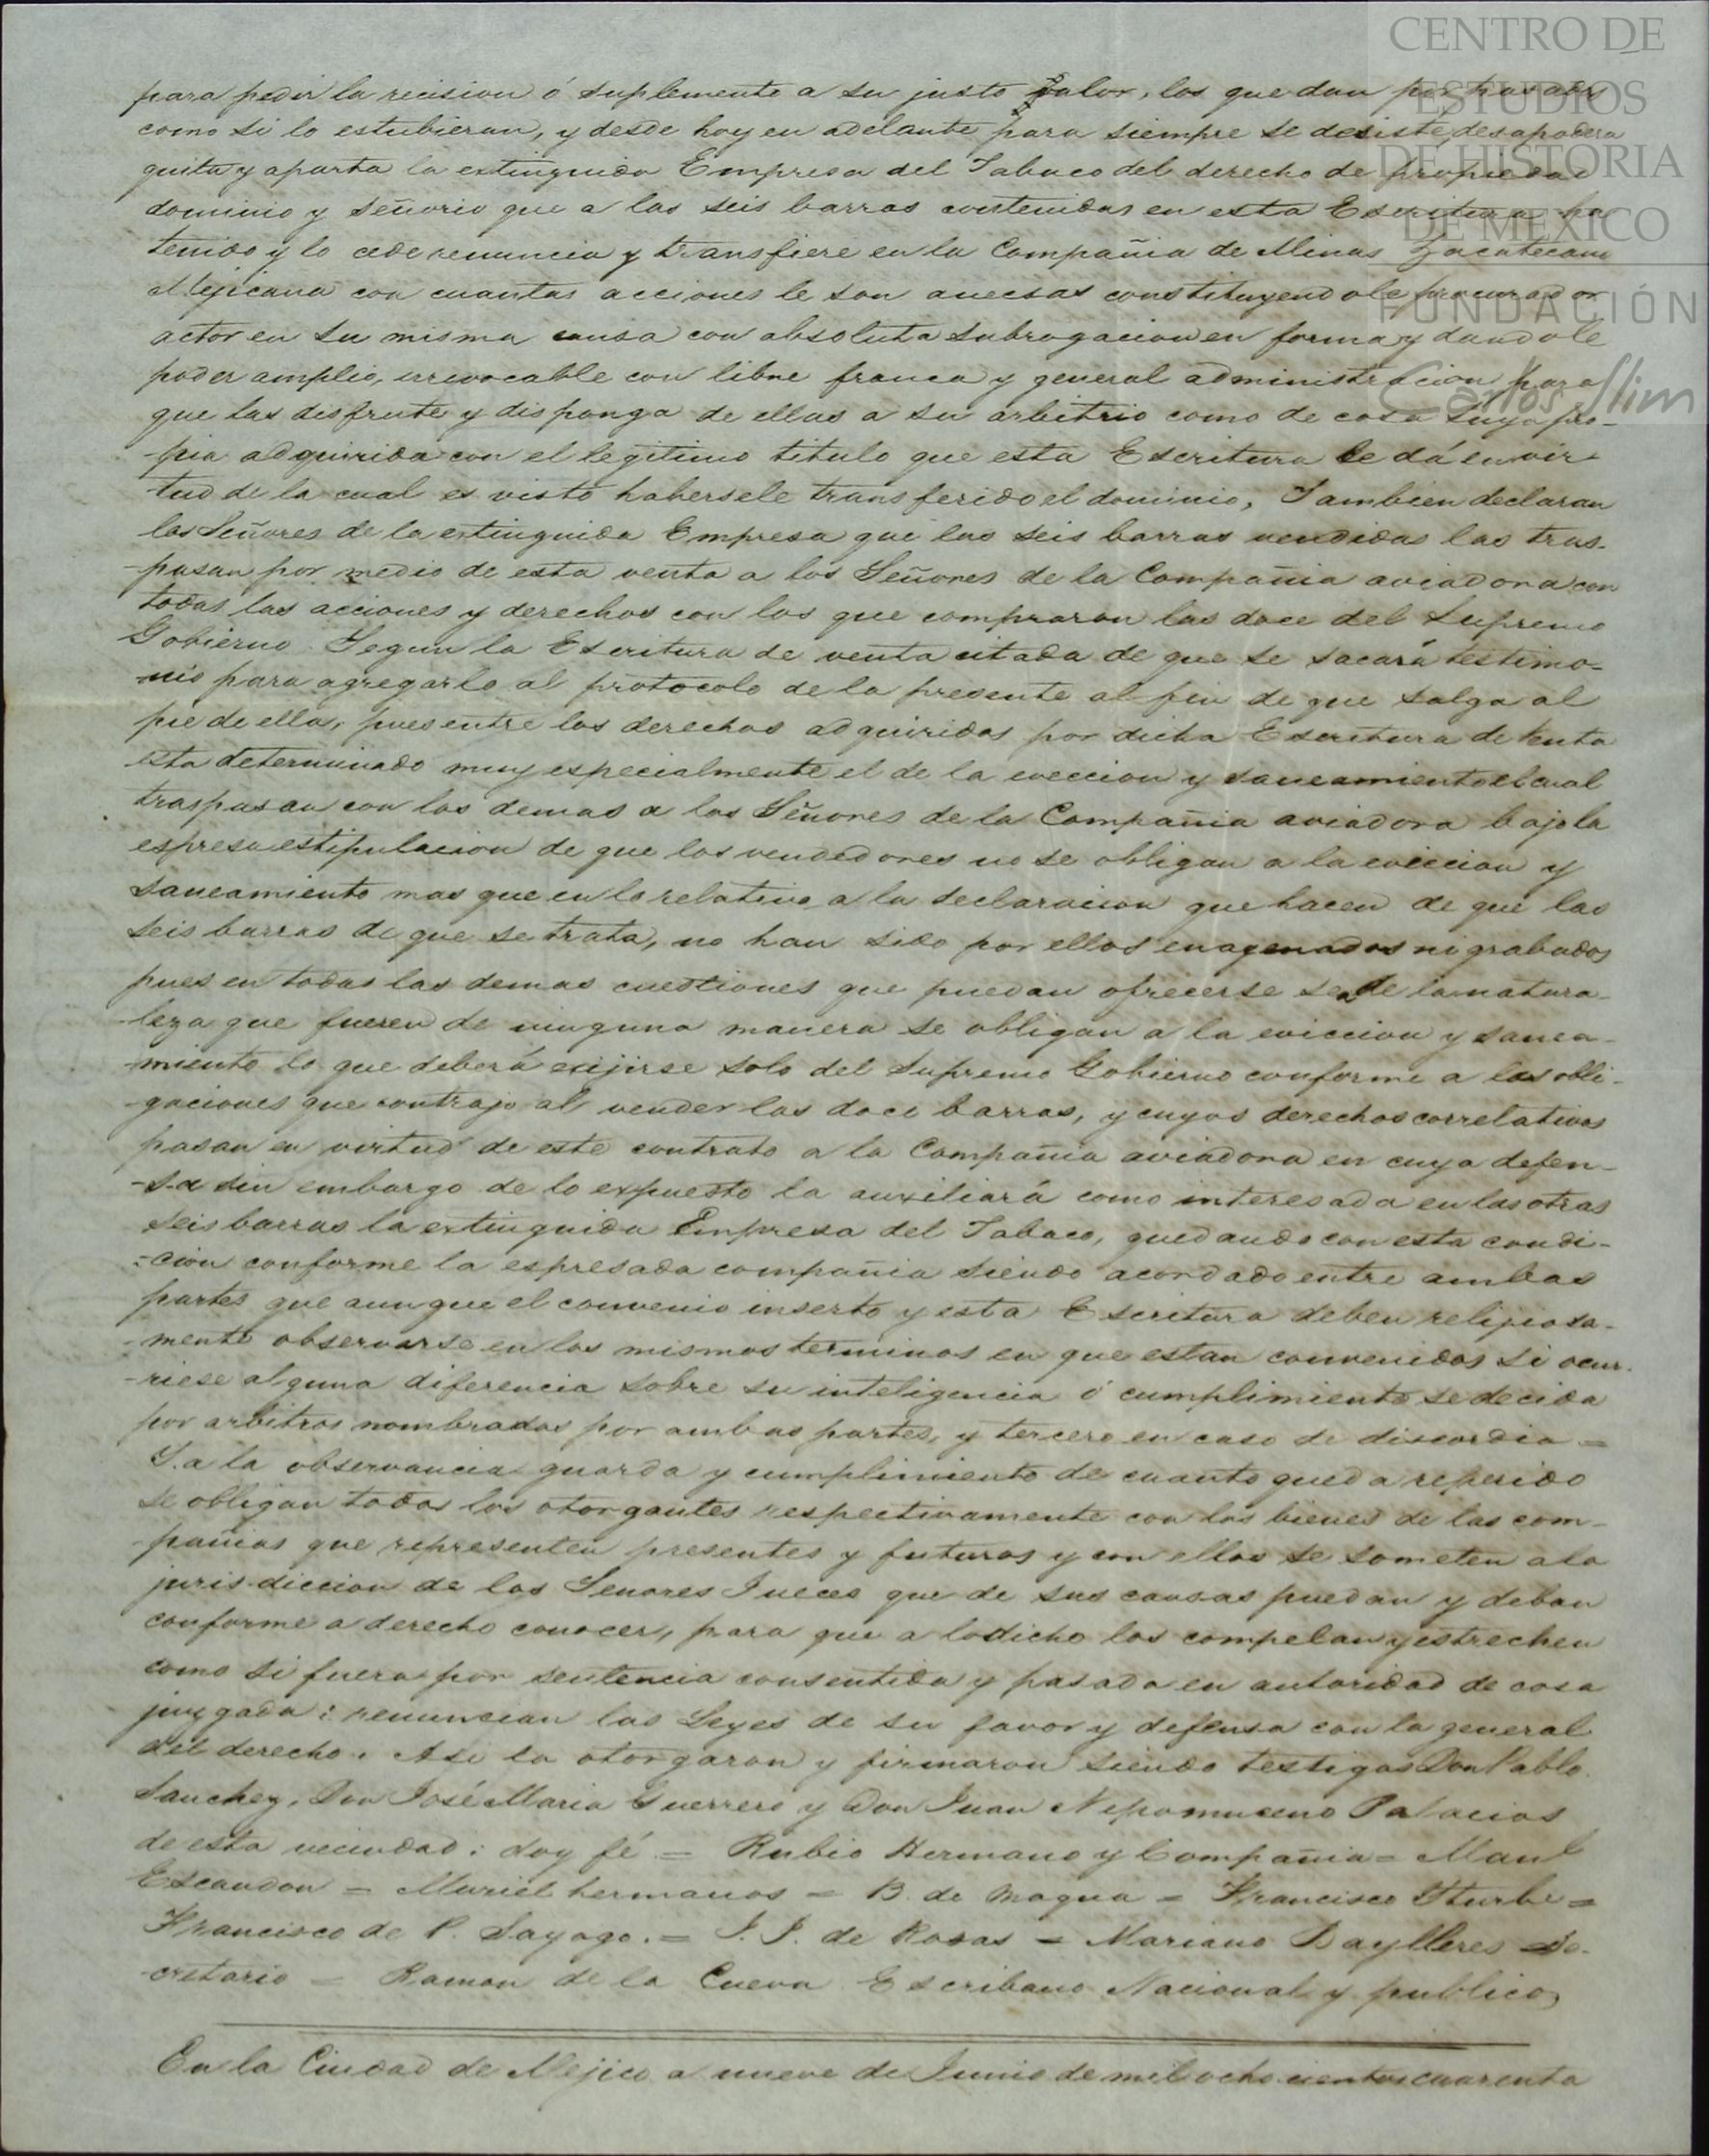 CENTRO DE
ESTUDIOS
DE HISTORIA
DE MÉXICO
FUNDACIÓN
Carlos Slim
para pedir la recision ó suplemento a su justo valor, los que dan por pasados
como si lo estubieran, y desde hoy en adelante para siempre se desiste, desapodera
quita y aparta la extinguida Empresa del Tabaco del derecho de propiedad
dominio y señorio que a las seis barras contenidas en esta Escritura ha
tenido y lo cede renuncia y transfiere en la Compañia de Minas Zacatecano
Mejicana con cuantas acciones le son anecsas constituyendole procurador
actor en su misma causa con absoluta subrogacion en forma y dandole
poder amplio, irrevocable con libre franca y general administracion para
que las disfrute y disponga de ellas a su arbitrio como de cosa suya pro-
-pia adquirida con el legitimo titulo que esta Escritura le dá en vir-
-tud de la cual es visto habersele transferido el dominio, Tambien declaran
los Señores de la extinguida Empresa que las seis barras vendidas las tras-
-pasan por medio de esta venta a los Señores de la Compañia aviadora con
todas las acciones y derechos con los que compraron las doce del Supremo
Gobierno Segun la Escritura de venta citada de que se sacará testimo-
-nio para agregarlo al protocolo de la presente al fin de que salga al
pie de ella, pues entre los derechos adquiridos por dicha Escritura de Venta
esta determinado muy especialmente el de la eveccion y saneamiento el cual
traspasan con los demas a los Señores de la Compañia aviadora bajo la
espresa estipulacion de que los vendedores no se obligan a la eviccion y
saneamiento mas que en lo relativo a la declaracion que hacen de que las
seis barras de que se trata, no han sido por ellos enagenados ni grabados
pues en todas las demas cuestiones que puedan ofrecerse sea de la natura-
-leza que fueren de ninguna manera se obligan a la eviccion y sanea-
-miento lo que deberá exijirse solo del Supremo Gobierno conforme a las obli-
-gaciones que contrajo al vender las doce barras, y cuyos derechos correlativos
pasan en virtud de este contrato a la Compañia aviadora en cuya defen-
-sa sin embargo de lo expuesto la auxiliará como interesada en las otras
seis barras la extinguida Empresa del Tabaco, quedando con esta condi-
-cion conforme la espresada compañia siendo acordado entre ambas
partes que aunque el convenio inserto y esta Escritura deben relijiosa-
-mente observarse en los mismos terminos en que estan convenidos si ocur-
-riese alguna diferencia sobre su inteligencia ó cumplimiento se decida
por arbitros nombrados por ambas partes, y tercero en caso de discordia =
Y a la observancia guarda y cumplimiento de cuanto queda referido
se obligan todos los otorgantes respectivamente con los bienes de las com-
-pañias que representen presentes y futuros y con ellos se someten a la
jurisdiccion de los Señores Jueces que de sus causas puedan y deban
conforme a derecho conocer, para que a lo dicho los compelan y estrechen
como si fuera por sentencia consentida y pasada en autoridad de cosa
juzgada: renuncian las Leyes de su favor y defensa con la general
del derecho. Asi lo otorgaron y firmaron siendo testigos Don Pablo
Sanchez, Don José Maria Guerrero y Don Juan Nepomuceno Palacios
de esta vecindad: doy fé = Rubio Hermano y Compañia = Manl
Escandon = Muriel hermanos = B. de Magua = Francisco Yturbe =
Francisco de P. Sayago. = J. J. de Rosas = Mariano Baylleres = Se-
-cretario = Ramon de la Cueva Escribano Nacional y publico,
En la Ciudad de Mejico a nueve de Junio de mil ocho cientos cuarenta